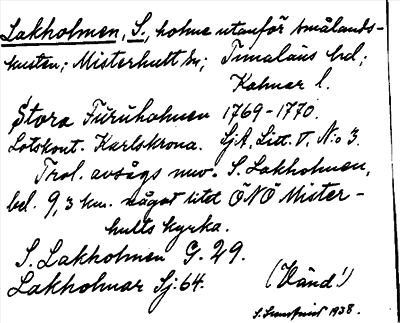 Lakholmen, S., holme utanför smålands-
kusten; Misterhult sn; Tunaläns hd;
Kalmar l.
Stora Furuholmen 1769-1770.
Lotskont. Karlskrona. SjA, Litt. T. N:o 3.
Trol. avsågs nuv. S. Lakholmen,
bel. 9,3 km. något litet ÖNÖ Mister-
hults kyrka.
S. Lakholmen G. 29.
Lakholmar Sj: 64.
(Vänd!)
1938.